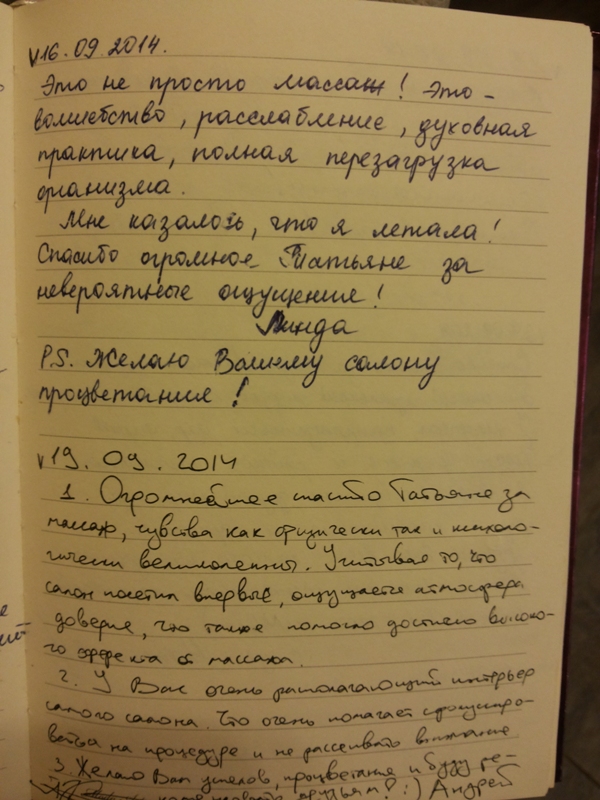 v16.09.2014.
Это не просто массаж! Это -
волшебство, расслабление, духовная
практика, полная перезагрузка
организма.
Мне казалось, что я летала!
Спасибо огромное Татьяне за
невероятные ощущения!
Линда
P.S. Желаю Вашему салону
процветания!
v19.09.2014
1. Огромнейшее спасибо Татьяне за
массаж, чувства как физически так и психоло-
гически великолепны. Учитывая то, что
салон посетил впервые, ощущается атмосфера
доверия, что также помогло достичь высоко-
го эффекта от массажа.
2. У Вас очень располагающий интерьер
самого салона. Что очень помогает сфокусиро-
ваться на процедуре и не рассеивать внимание
3. Желаю Вам успехов, процветания и буду ре-
друзьям! :) Андрей